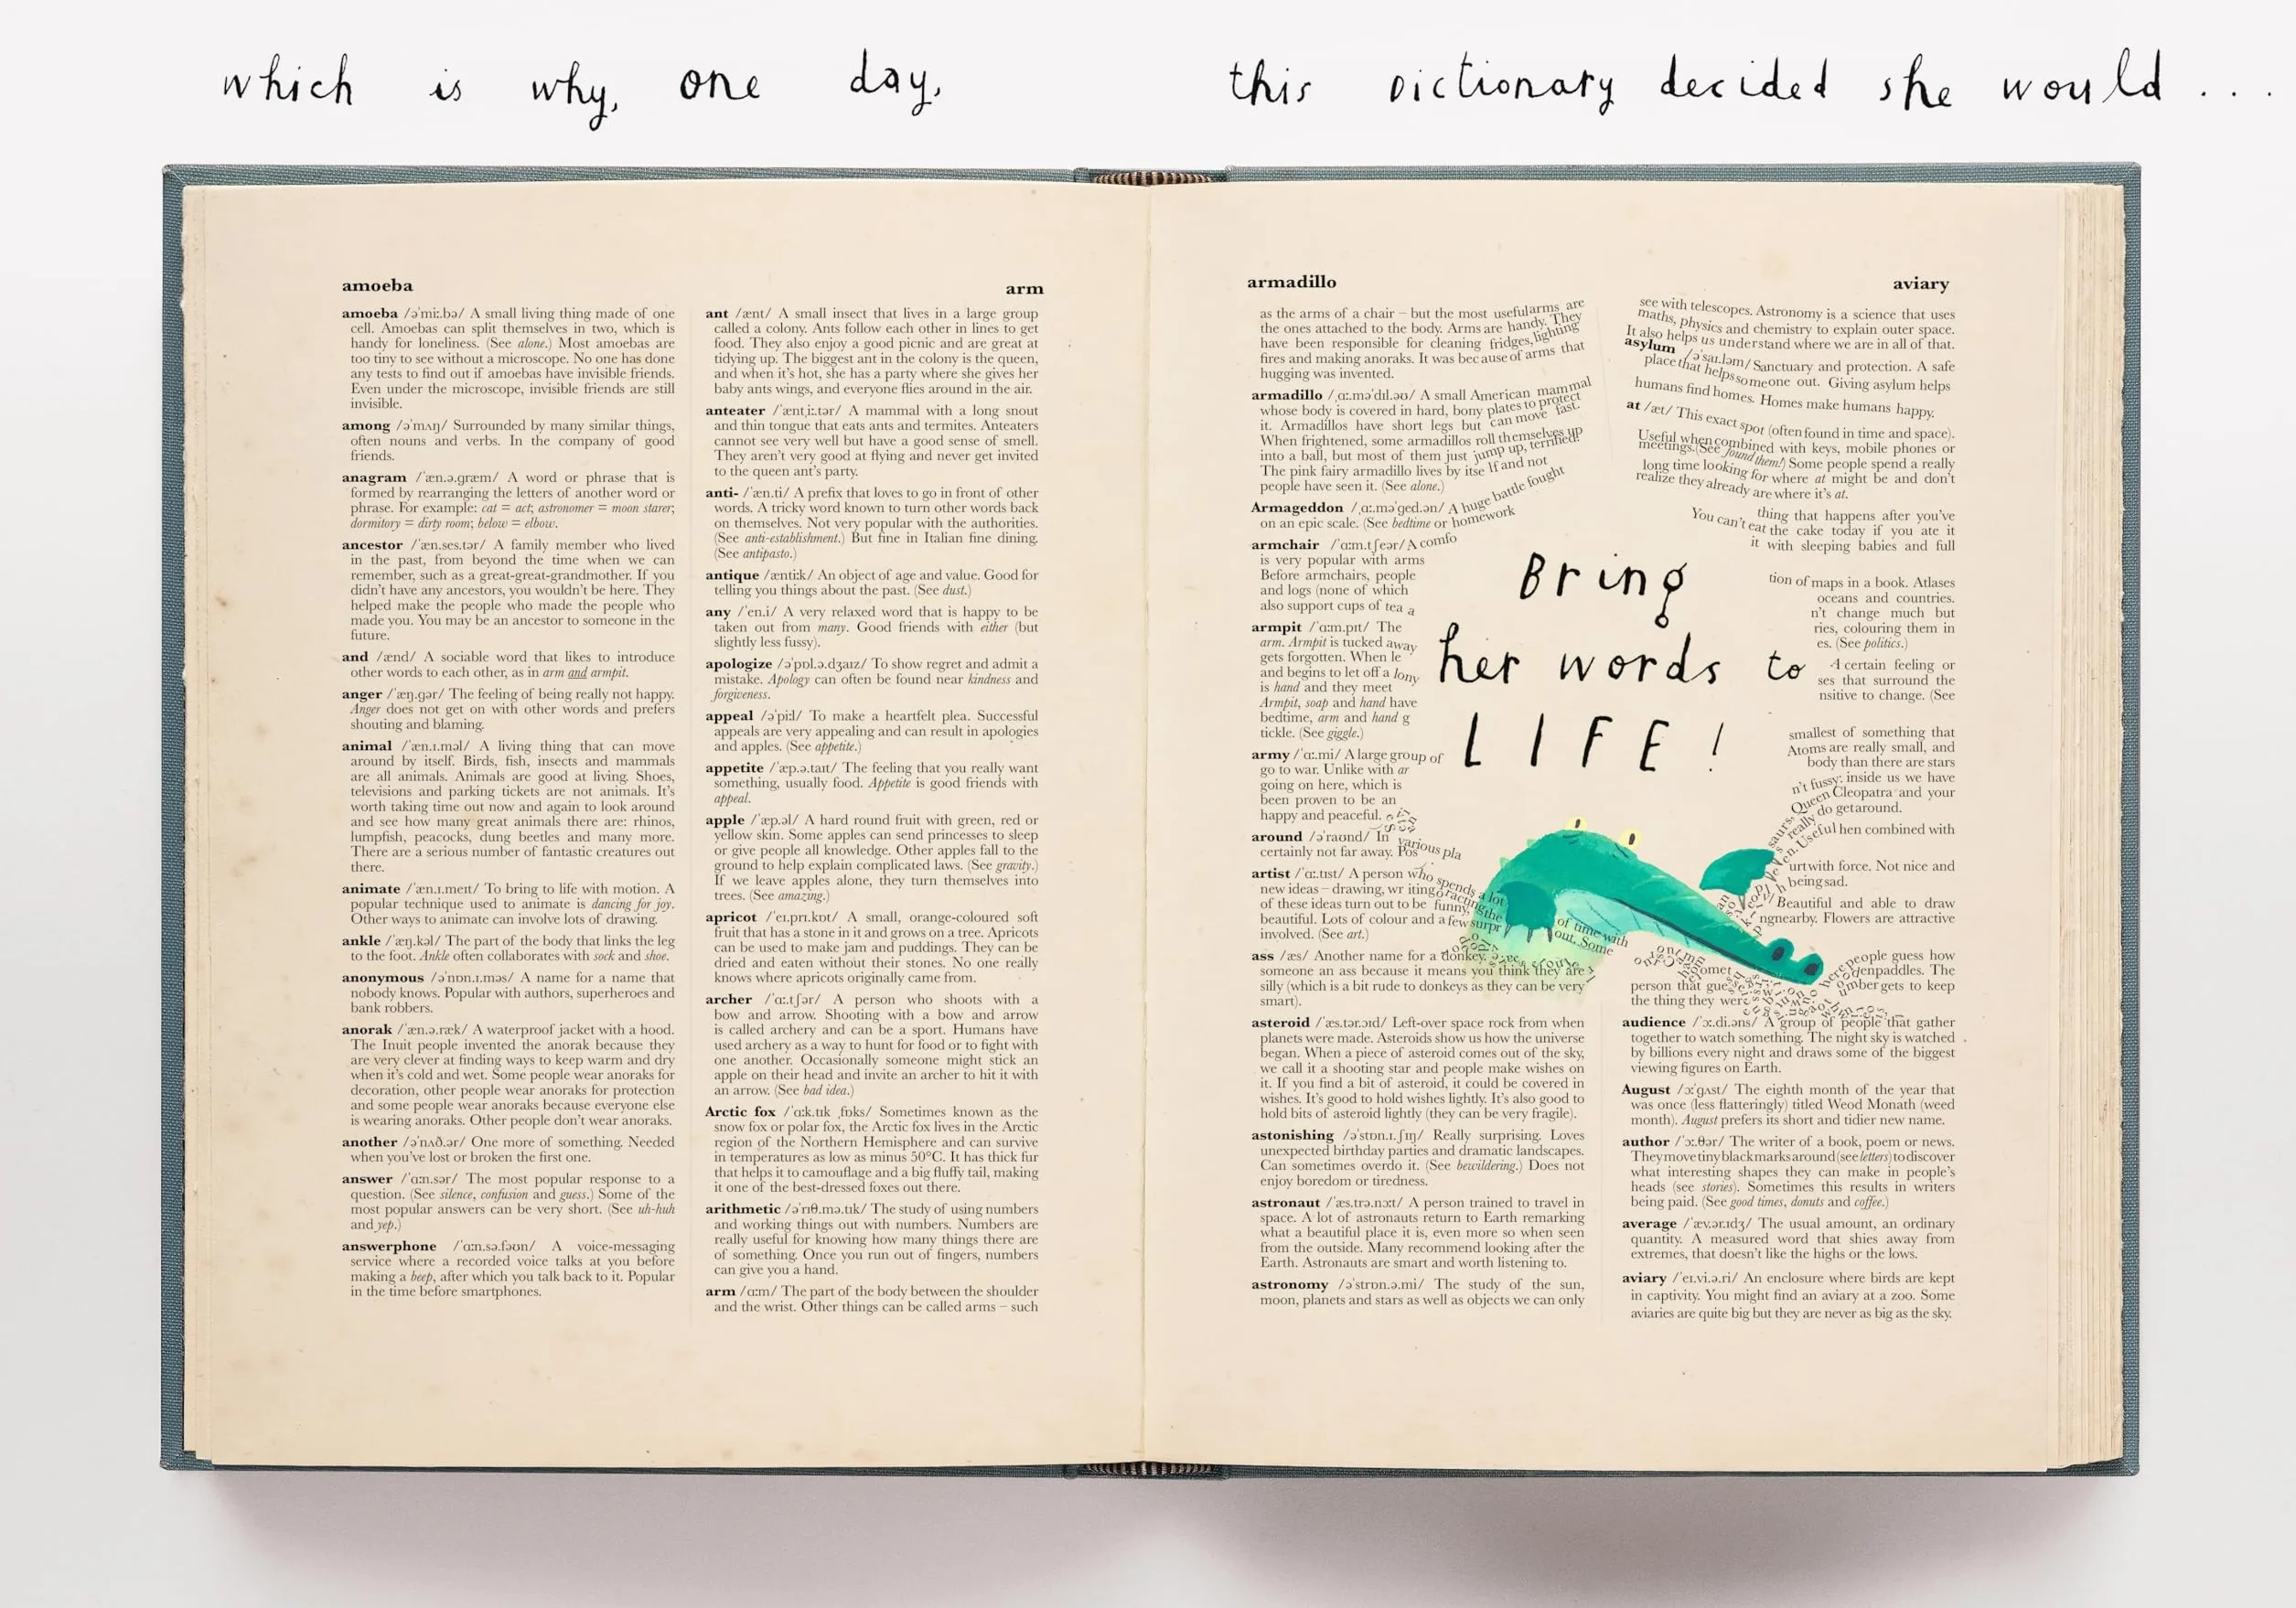 which is why, one day,
this Dictionary decided she would ...
amoeba
arm
amoeba /əˈmiː.bə/ A small living thing made of one
cell. Amoebas can split themselves in two, which is
handy for loneliness. (See alone.) Most amoebas are
too tiny to see without a microscope. No one has done
any tests to find out if amoebas have invisible friends.
Even under the microscope, invisible friends are still
invisible.
among /əˈmʌŋ/ Surrounded by many similar things,
often nouns and verbs. In the company of good
friends.
anagram /ˈæn.ə.ɡræm/ A word or phrase that is
formed by rearranging the letters of another word or
phrase. For example: cat = act; astronomer = moon starer;
dormitory = dirty room; below = elbow.
ancestor /ˈæn.ses.tər/ A family member who lived
in the past, from beyond the time when we can
remember, such as a great-great-grandmother. If you
didn't have any ancestors, you wouldn't be here. They
helped make the people who made the people who
made you. You may be an ancestor to someone in the
future.
and /ænd/ A sociable word that likes to introduce
other words to each other, as in arm and armpit.
anger /ˈæŋ.ɡər/ The feeling of being really not happy.
Anger does not get on with other words and prefers
shouting and blaming.
animal /ˈæn.ɪ.məl/ A living thing that can move
around by itself. Birds, fish, insects and mammals
are all animals. Animals are good at living. Shoes,
televisions and parking tickets are not animals. It's
worth taking time out now and again to look around
and see how many great animals there are: rhinos,
lumpfish, peacocks, dung beetles and many more.
There are a serious number of fantastic creatures out
there.
animate /ˈæn.ɪ.meɪt/ To bring to life with motion. A
popular technique used to animate is dancing for joy.
Other ways to animate can involve lots of drawing.
ankle /ˈæŋ.kəl/ The part of the body that links the leg
to the foot. Ankle often collaborates with sock and shoe.
anonymous /əˈnɒn.ɪ.məs/ A name for a name that
nobody knows. Popular with authors, superheroes and
bank robbers.
anorak /ˈæn.ə.ræk/ A waterproof jacket with a hood.
The Inuit people invented the anorak because they
are very clever at finding ways to keep warm and dry
when it's cold and wet. Some people wear anoraks for
decoration, other people wear anoraks for protection
and some people wear anoraks because everyone else
is wearing anoraks. Other people don't wear anoraks.
another /əˈnʌð.ər/ One more of something. Needed
when you've lost or broken the first one.
answer /ˈɑːn.sər/ The most popular response to a
question. (See silence, confusion and guess.) Some of the
most popular answers can be very short. (See uh-huh
and yep.)
answerphone /ˈɑːn.sə.fəʊn/ A voice-messaging
service where a recorded voice talks at you before
making a beep, after which you talk back to it. Popular
in the time before smartphones.
ant /ænt/ A small insect that lives in a large group
called a colony. Ants follow each other in lines to get
food. They also enjoy a good picnic and are great at
tidying up. The biggest ant in the colony is the queen,
and when it's hot, she has a party where she gives her
baby ants wings, and everyone flies around in the air.
anteater /ˈæntˌiː.tər/ A mammal with a long snout
and thin tongue that eats ants and termites. Anteaters
cannot see very well but have a good sense of smell.
They aren't very good at flying and never get invited
to the queen ant's party.
anti- /ˈæn.ti/ A prefix that loves to go in front of other
words. A tricky word known to turn other words back
on themselves. Not very popular with the authorities.
(See anti-establishment.) But fine in Italian fine dining.
(See antipasto.)
antique /æntiːk/ An object of age and value. Good for
telling you things about the past. (See dust.)
any /ˈen.i/ A very relaxed word that is happy to be
taken out from many. Good friends with either (but
slightly less fussy).
apologize /əˈpɒl.ə.dʒaɪz/ To show regret and admit a
mistake. Apology can often be found near kindness and
forgiveness.
appeal /əˈpiːl/ To make a heartfelt plea. Successful
appeals are very appealing and can result in apologies
and apples. (See appetite.)
appetite /ˈæp.ə.taɪt/ The feeling that you really want
something, usually food. Appetite is good friends with
appeal.
apple /ˈæp.əl/ A hard round fruit with green, red or
yellow skin. Some apples can send princesses to sleep
or give people all knowledge. Other apples fall to the
ground to help explain complicated laws. (See gravity.)
If we leave apples alone, they turn themselves into
trees. (See amazing.)
apricot /ˈeɪ.prɪ.kɒt/ A small, orange-coloured soft
fruit that has a stone in it and grows on a tree. Apricots
can be used to make jam and puddings. They can be
dried and eaten without their stones. No one really
knows where apricots originally came from.
archer /ˈɑː.tʃər/ A person who shoots with a
bow and arrow. Shooting with a bow and arrow
is called archery and can be a sport. Humans have
used archery as a way to hunt for food or to fight with
one another. Occasionally someone might stick an
apple on their head and invite an archer to hit it with
an arrow. (See bad idea.)
Arctic fox /ˈɑːk.tɪk ˌfɒks/ Sometimes known as the
snow fox or polar fox, the Arctic fox lives in the Arctic
region of the Northern Hemisphere and can survive
in temperatures as low as minus 50°C. It has thick fur
that helps it to camouflage and a big fluffy tail, making
it one of the best-dressed foxes out there.
arithmetic /əˈrɪθ.mə.tɪk/ The study of using numbers
and working things out with numbers. Numbers are
really useful for knowing how many things there are
of something. Once you run out of fingers, numbers
can give you a hand.
arm /ɑːm/ The part of the body between the shoulder
and the wrist. Other things can be called arms – such
armadillo
aviary
as the arms of a chair – but the most useful arms are
the ones attached to the body. Arms are handy. They
have been responsible for cleaning fridges, lighting
fires and making anoraks. It was because of arms that
hugging was invented.
armadillo /ˌɑː.məˈdɪl.əʊ/ A small American mammal
whose body is covered in hard, bony plates to protect
it. Armadillos have short legs but can move fast.
When frightened, some armadillos roll themselves up
into a ball, but most of them just jump up, terrified!
The pink fairy armadillo lives by itse lf and not
people have seen it. (See alone.)
Armageddon /ˌɑː.məˈɡed.ən/ A huge battle fought
on an epic scale. (See bedtime or homework
armchair /ˈɑːm.tʃeər/ A comfo
is very popular with arms
Before armchairs, people
and logs (none of which
also support cups of tea a
armpit /ˈɑːm.pɪt/ The
arm. Armpit is tucked away
gets forgotten. When le
and begins to let off a lony
is hand and they meet
Armpit, soap and hand have
bedtime, arm and hand g
tickle. (See giggle.)
army /ˈɑː.mi/ A large group of
go to war. Unlike with ar
going on here, which is
been proven to be an
happy and peaceful.
around /əˈraʊnd/ In various pla
certainly not far away. Pos
artist /ˈɑː.tɪst/ A person who spends a lot of time with
new ideas – drawing, wr iting
of these ideas turn out to be funny, out. Some
beautiful. Lots of colour and a few surpr
involved. (See art.)
ass /æs/ Another name for a donkey.
someone an ass because it means you think they are
silly (which is a bit rude to donkeys as they can be very
smart).
asteroid /ˈæs.tər.ɔɪd/ Left-over space rock from when
planets were made. Asteroids show us how the universe
began. When a piece of asteroid comes out of the sky,
we call it a shooting star and people make wishes on
it. If you find a bit of asteroid, it could be covered in
wishes. It's good to hold wishes lightly. It's also good to
hold bits of asteroid lightly (they can be very fragile).
astonishing /əˈstɒn.ɪ.ʃɪŋ/ Really surprising. Loves
unexpected birthday parties and dramatic landscapes.
Can sometimes overdo it. (See bewildering.) Does not
enjoy boredom or tiredness.
astronaut /ˈæs.trə.nɔːt/ A person trained to travel in
space. A lot of astronauts return to Earth remarking
what a beautiful place it is, even more so when seen
from the outside. Many recommend looking after the
Earth. Astronauts are smart and worth listening to.
astronomy /əˈstrɒn.ə.mi/ The study of the sun,
moon, planets and stars as well as objects we can only
see with telescopes. Astronomy is a science that uses
maths, physics and chemistry to explain outer space.
It also helps us understand where we are in all of that.
asylum /əˈsaɪ.ləm/ Sanctuary and protection. A safe
place that helps someone out. Giving asylum helps
humans find homes. Homes make humans happy.
at /æt/ This exact spot (often found in time and space).
Useful when combined with keys, mobile phones or
meetings. (See found them!) Some people spend a really
long time looking for where at might be and don't
realize they already are where it's at.
thing that happens after you've
You can't eat the cake today if you ate it
it with sleeping babies and full
tion of maps in a book. Atlases
oceans and countries.
n't change much but
ries, colouring them in
es. (See politics.)
A certain feeling or
ses that surround the
nsitive to change. (See
smallest of something that
Atoms are really small, and
body than there are stars
n't fussy: inside us we have
Queen Cleopatra and your
really do getaround.
Useful hen combined with
urtwith force. Not nice and
being sad.
Beautiful and able to draw
ngnearby. Flowers are attractive
people guess how
denpaddles. The
person that gue umber gets to keep
the thing they were
audience /ˈɔː.di.əns/ A group of people that gather
together to watch something. The night sky is watched
by billions every night and draws some of the biggest
viewing figures on Earth.
August /ɔːˈɡʌst/ The eighth month of the year that
was once (less flatteringly) titled Weod Monath (weed
month). August prefers its short and tidier new name.
author /ˈɔː.θər/ The writer of a book, poem or news.
They move tiny black marks around (see letters) to discover
what interesting shapes they can make in people's
heads (see stories). Sometimes this results in writers
being paid. (See good times, donuts and coffee.)
average /ˈæv.ər.ɪdʒ/ The usual amount, an ordinary
quantity. A measured word that shies away from
extremes, that doesn't like the highs or the lows.
aviary /ˈeɪ.vi.ə.ri/ An enclosure where birds are kept
in captivity. You might find an aviary at a zoo. Some
aviaries are quite big but they are never as big as the sky.
Bring
her words to
LIFE!